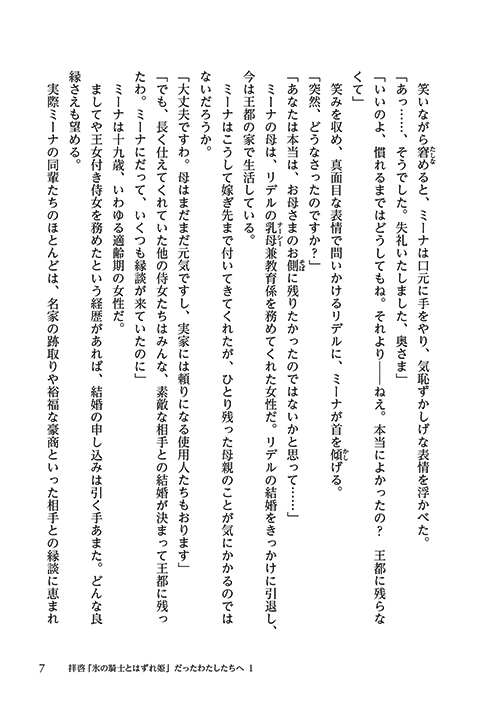 笑いながら窘めると、ミーナは口元に手をやり、気恥ずかしげな表情を浮かべた。
「あっ……、そうでした。失礼いたしました、奥さま」
「いいのよ、慣れるまではどうしてもね。それより――ねえ。本当によかったの?　王都に残らな
くて」
笑みを収め、真面目な表情で問いかけるリデルに、ミーナが首を傾げる。
「突然、どうなさったのですか?」
「あなたは本当は、お母さまのお側に残りたかったのではないかと思って……」
ミーナの母は、リデルの乳母兼教育係を務めてくれた女性だ。リデルの結婚をきっかけに引退し、
今は王都の家で生活している。
ミーナはこうして嫁ぎ先まで付いてきてくれたが、ひとり残った母親のことが気にかかるのでは
ないだろうか。
「大丈夫ですわ。母はまだまだ元気ですし、実家には頼りになる使用人たちもおります」
「でも、長く仕えてくれていた他の侍女たちはみんな、素敵な相手との結婚が決まって王都に残っ
たわ。ミーナにだって、いくつも縁談が来ていたのに」
ミーナは十九歳、いわゆる適齢期の女性だ。
ましてや王女付き侍女を務めたという経歴があれば、結婚の申し込みは引く手あまた。どんな良
縁さえも望める。
実際ミーナの同輩たちのほとんどは、名家の跡取りや裕福な豪商といった相手との縁談に恵まれ
7　拝啓「氷の騎士とはずれ姫」だったわたしたちへ 1